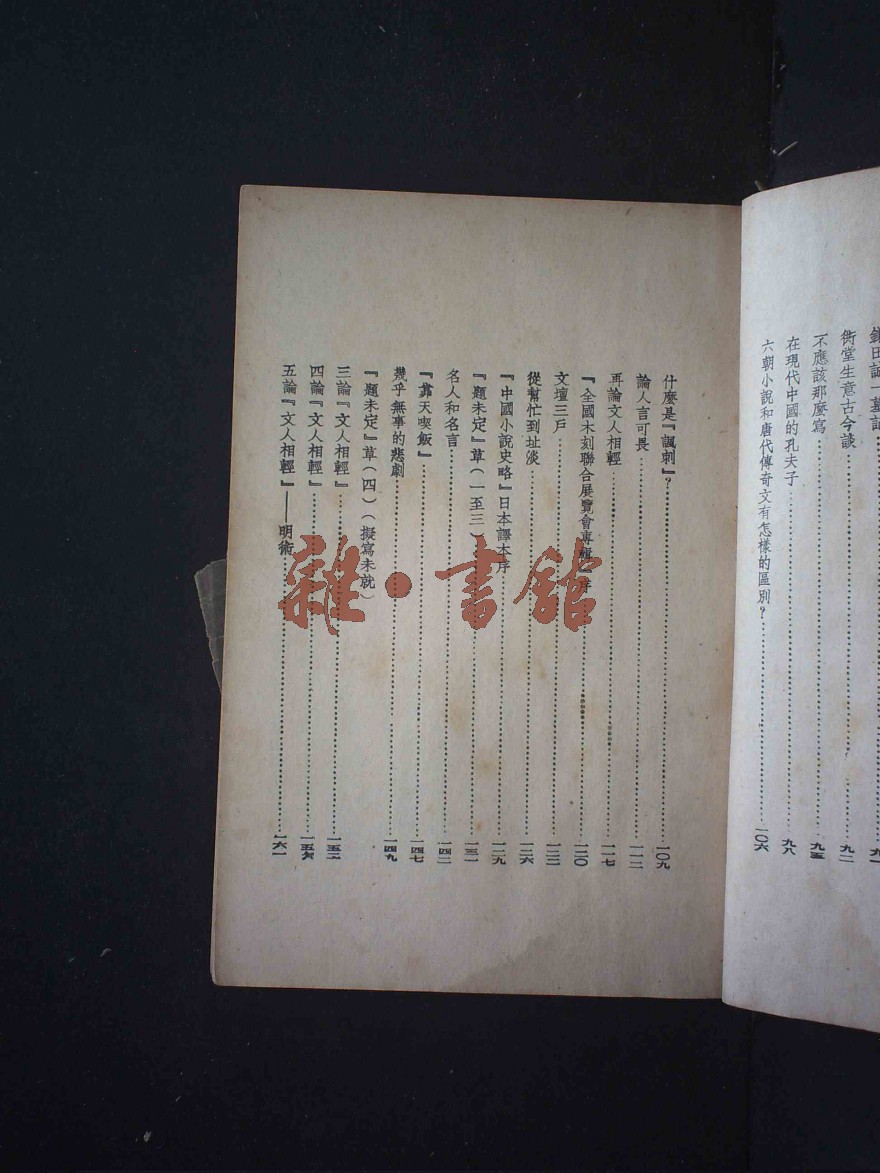 田誠一墓記……九一
衖堂生意古今談……九二
不應該那麼寫……九五
在現代中國的孔夫子……九八
六朝小說和唐代傳奇文有怎樣的區別？……一〇六
什麼是『諷刺』？……一〇九
論人言可畏……一一二
再論文人相輕……一一七
『全國木刻聯合展覽會專輯』序……一二〇
文壇三戶……一二二
從幫忙到扯淡……一二六
『中國小說史略』日本譯本序……一二九
『題未定』草（一至三）……一三一
名人和名言……一四二
『靠天喫飯』……一四七
幾乎無事的悲劇……一四九
『題未定』草（四）（擬寫未就）
三論『文人相輕』……一五二
四論『文人相輕』……一五六
五論『文人相輕』——明術……一六一
雜·書館